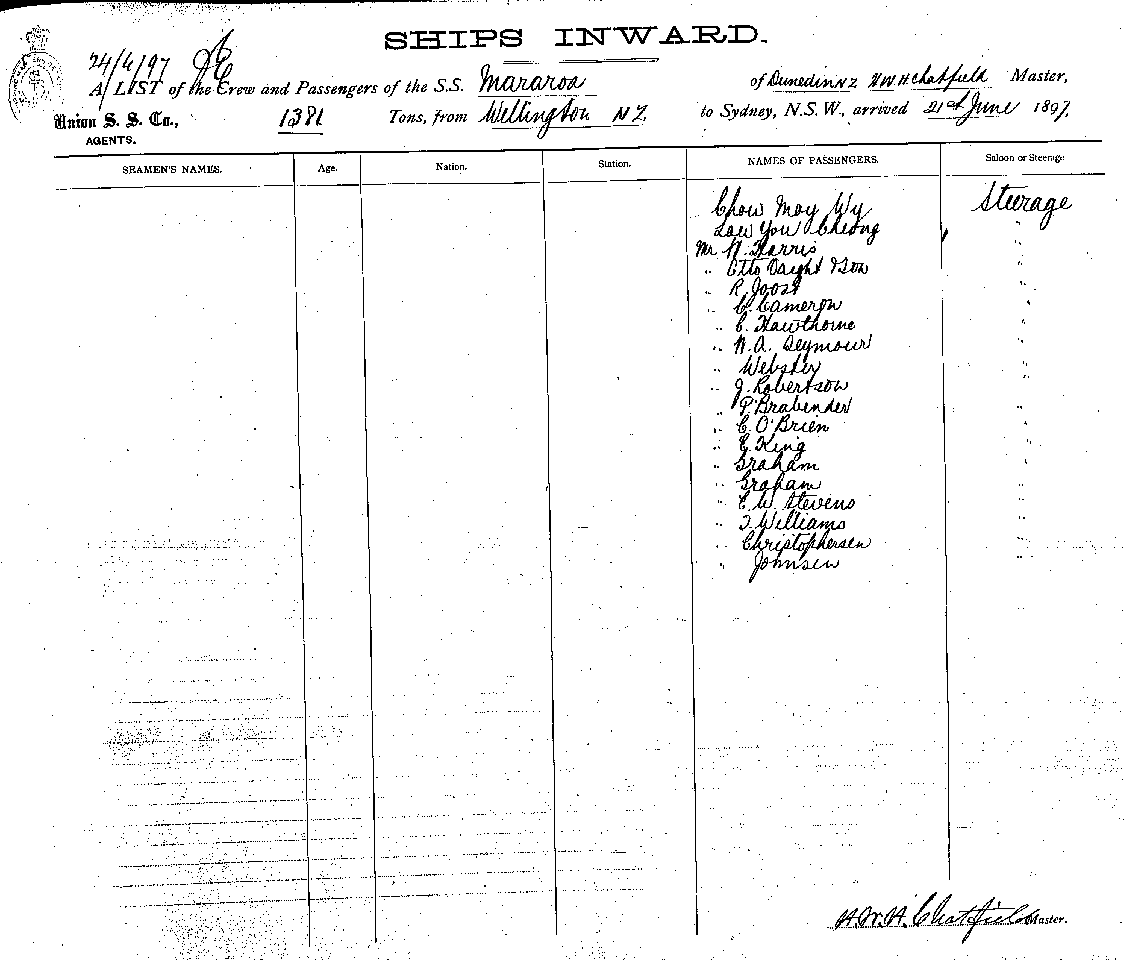 SHIPS INWARD.
24/6/97
A LIST of the Crew and Passengers of the S.S. Mararoa of Dunedin NZ H W H Chatfield Master,
Union S. S. Co., 1381 Tons, from Wellington NZ. to Sydney, N.S.W., arrived 21st June 1897,
AGENTS.
SEAMEN'S NAMES. Age. Nation. Station. NAMES OF PASSENGERS. Saloon or Steerage
Chow Moy Wy Steerage
Law You Cheong "
Mr N. Harris "
" Otto Vaight & Son "
" R. Joost "
" C. Cameron "
" C. Hawthorne "
" N. A. Seymour "
" Webster "
" J. Robertson "
" P. Brabender "
" C. O'Brien "
" E. King "
" Graham "
" Graham "
" E. W. Stevens "
" T. Williams "
" Christophersen "
" Johnsen
H. W. H. Chatfield Master.